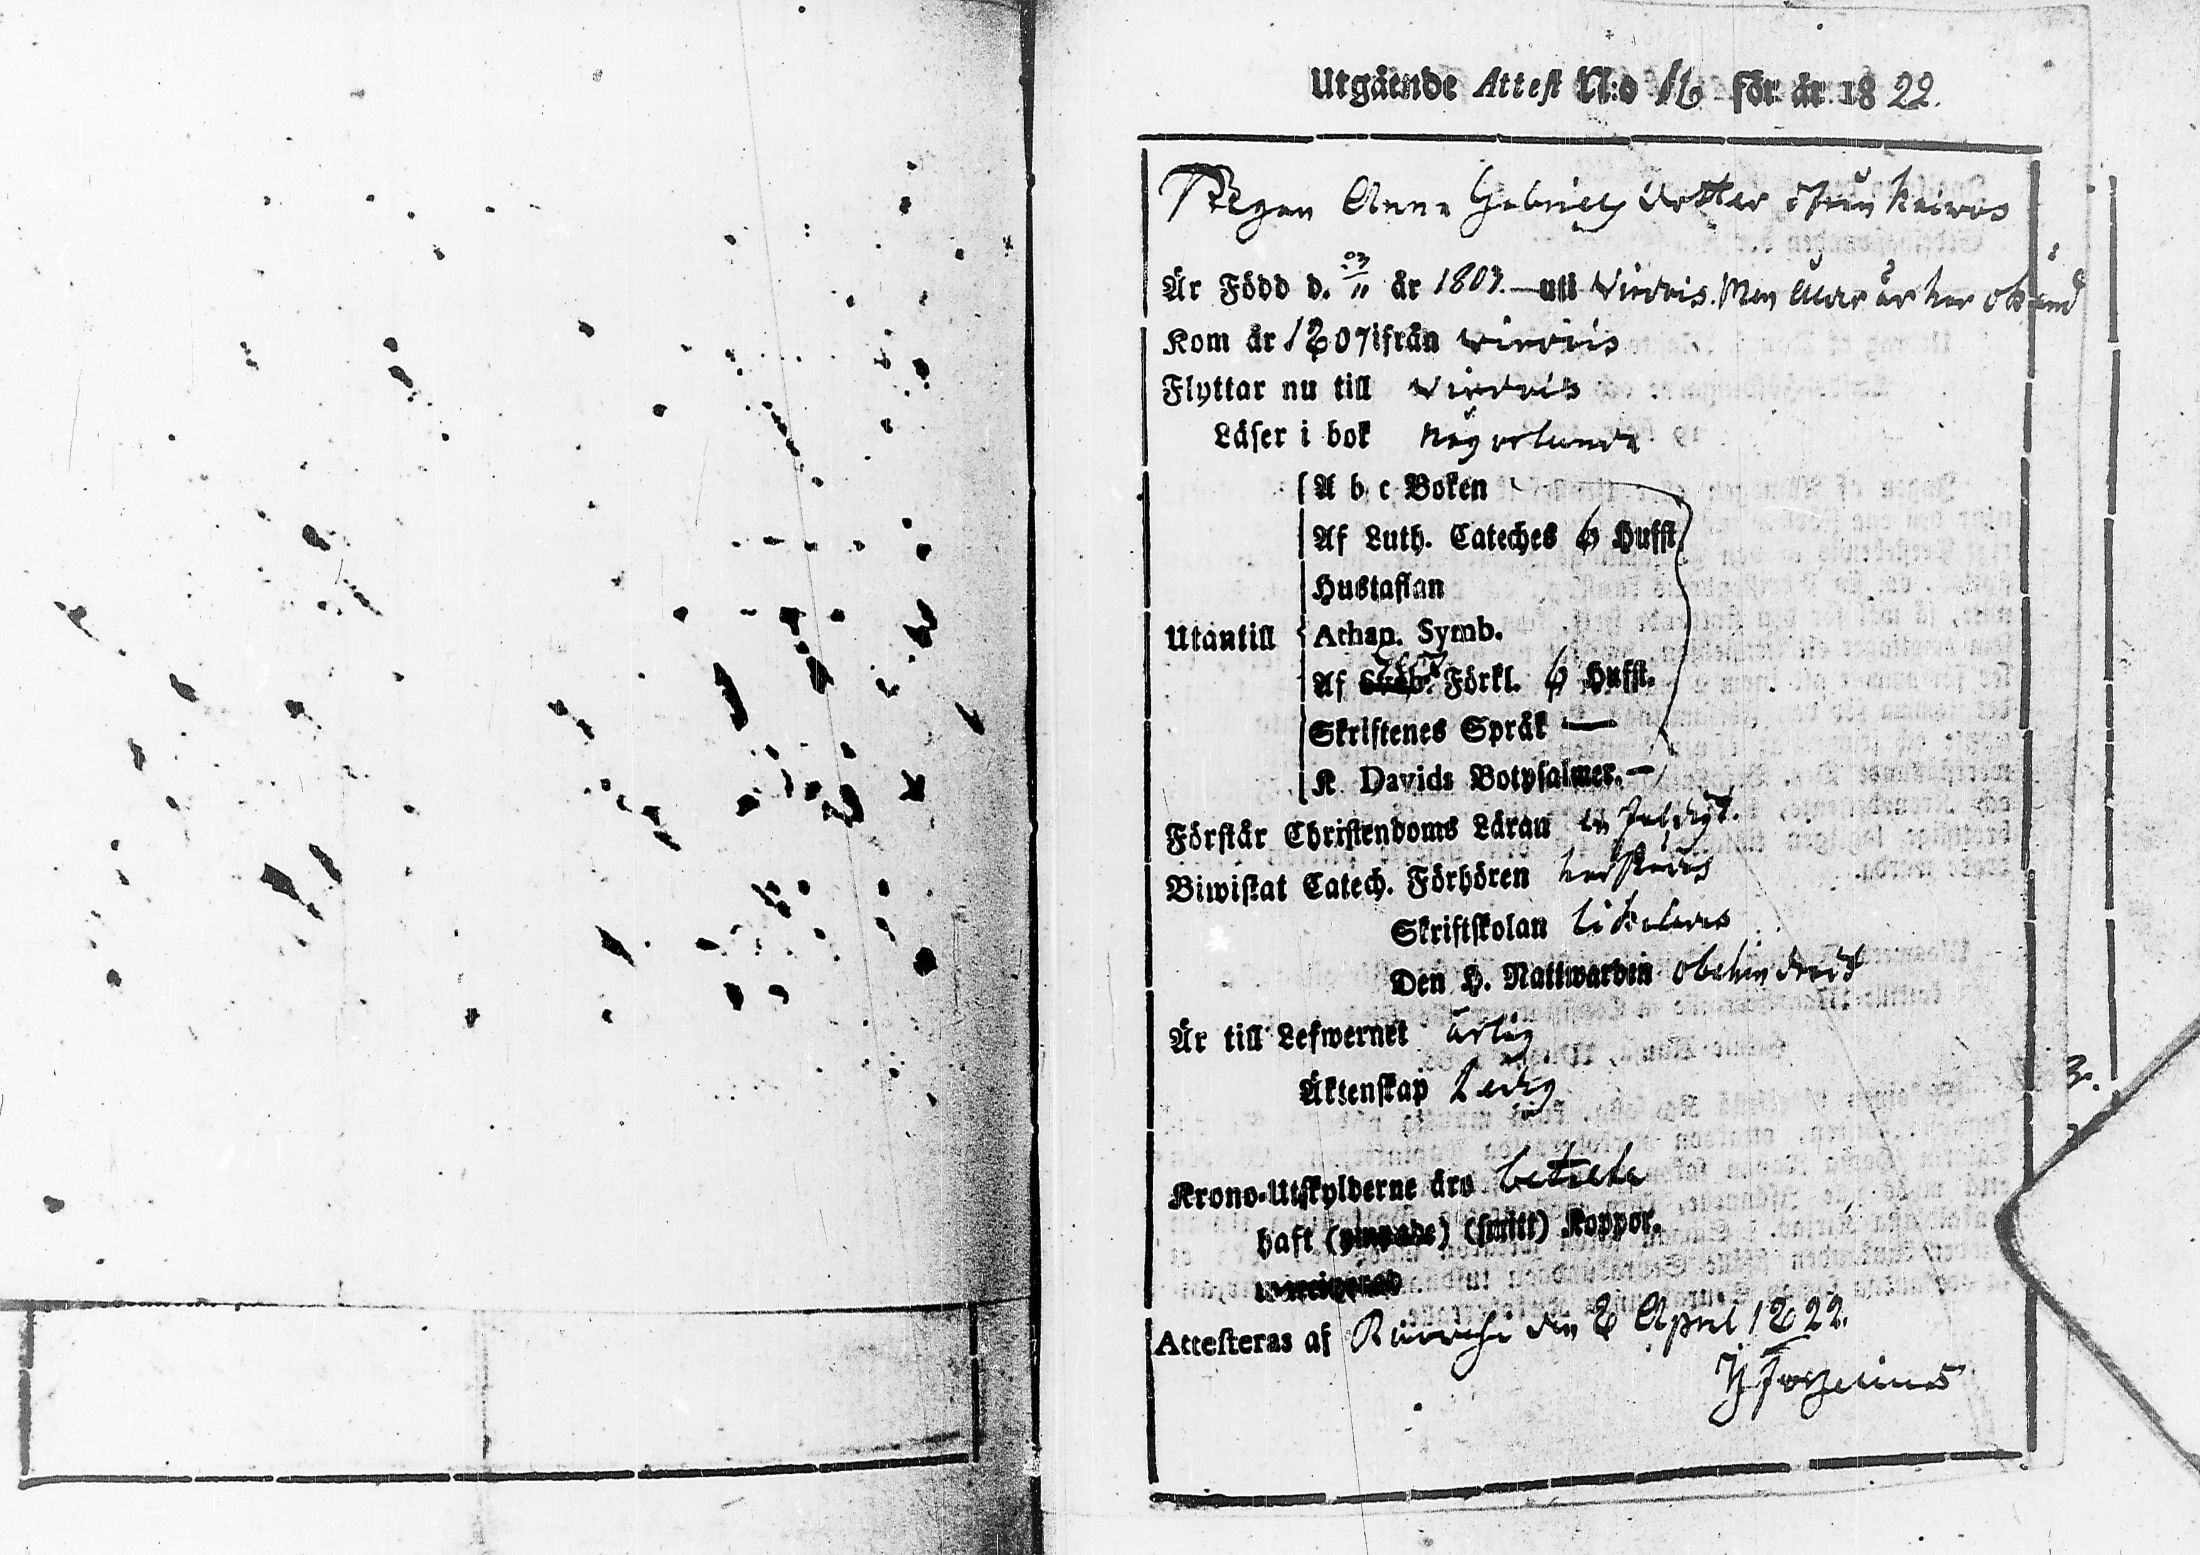 Utgående Attest N:o 16 för år 1822.
Pigan Anna Gabriels dotter ifrån
Är Född d. är 1803. uti Wirdois. Men åldr är här okänd
Kom år 1807 ifrån Wirdois
Flyttar nu till Wirdois
Läser i bok någorlunda
A b c Boken
Af Luth. Cateches 6 Hufst.
Hustaflan
Utantill Athan. Symb.
Af Förkl. 6 Hufst.
Skriftenes Språk —
K Davids Botpsalmer. —
Förstår Christendoms Läran
Biwistat Catech. Förhören
Skriftskolan likaledes
Den H. Nattwarden obehindrad
Är till Lefwernet ärlig
Äktenskap Ledig
Krono-Utskylderne äro betalde
haft (smitt) Koppor.
Attesteras af den 8 April 1822.
3.